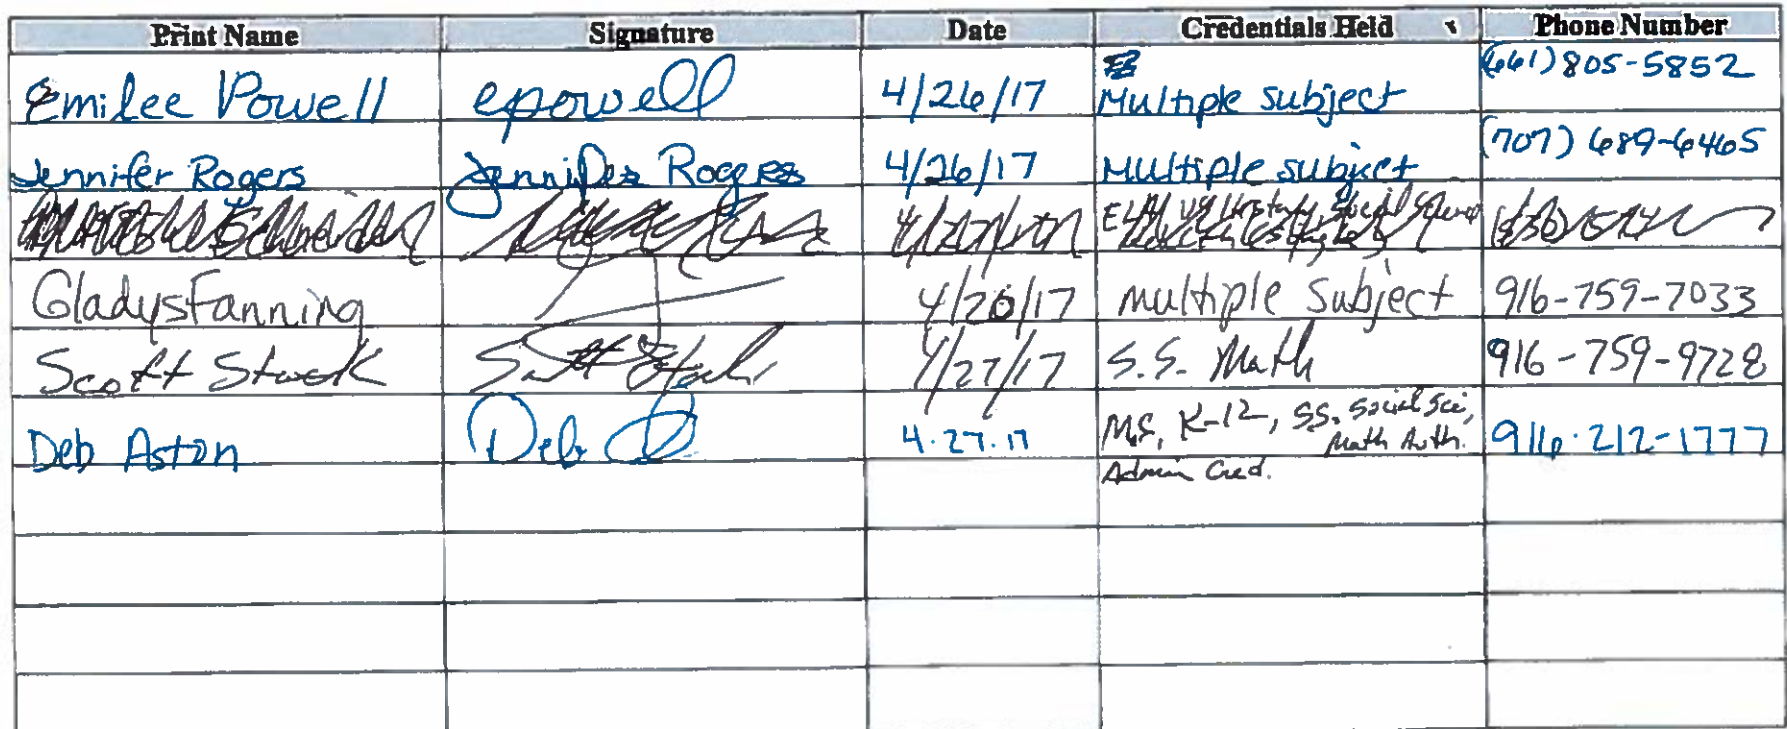 Print Name Signature Date Credentials Held Phone Number
Emilee Powell epowell 4/26/17 Multiple subject (661) 805-5852
Jennifer Rogers Jennifer Rogers 4/26/17 Multiple subject (707) 689-6465
Gladys Fanning 4/20/17 multiple Subject 916-759-7033
Scott Scott 4/27/17 S.S. Math 916-759-9728
Deb Aston Deb 4.27.17 M.S, K-12, SS. Social Sci, 916.212-1777
Math Auth.
Admin Cred.